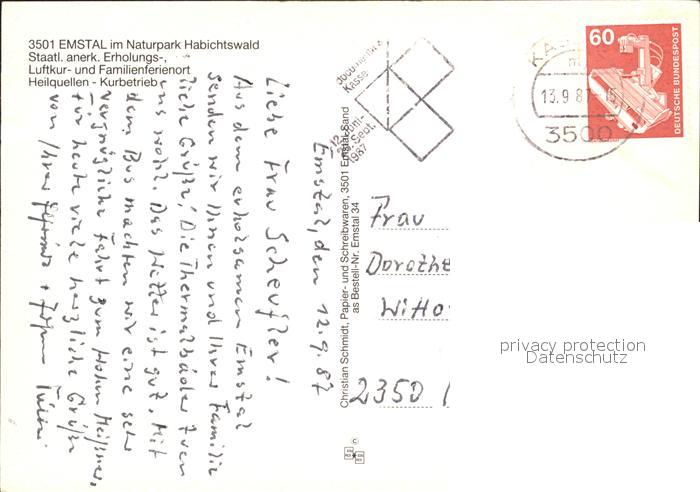 3501 EMSTAL im Naturpark Habichtswald
Staatl. anerk. Erholungs-,
Luftkur- und Familienferienort
Heilquellen - Kurbetrieb
Emstal, den 12.9.87
Liebe Frau Scheufler!
Aus dem erholsamen Emstal
senden wir Ihnen und Ihrer Familie
liebe Grüße. Die Thermalbäder tuen
uns wohl. Das Wetter ist gut. Mit
dem Bus machten wir eine sehr
vergnügliche Fahrt zum Hohen Meißner.
Für heute viele herzliche Grüße
von Ihrer
Christian Schmidt, Papier- und Schreibwaren, 3501 Emstal-Sand
as Bestell-Nr. Emstal 34
documenta 8
Kassel
12. Juni-
20. Sept.
1987
13.9.87
3500
60
DEUTSCHE BUNDESPOST
Frau
Dorothe
Witto
2350
privacy protection
Datenschutz
©